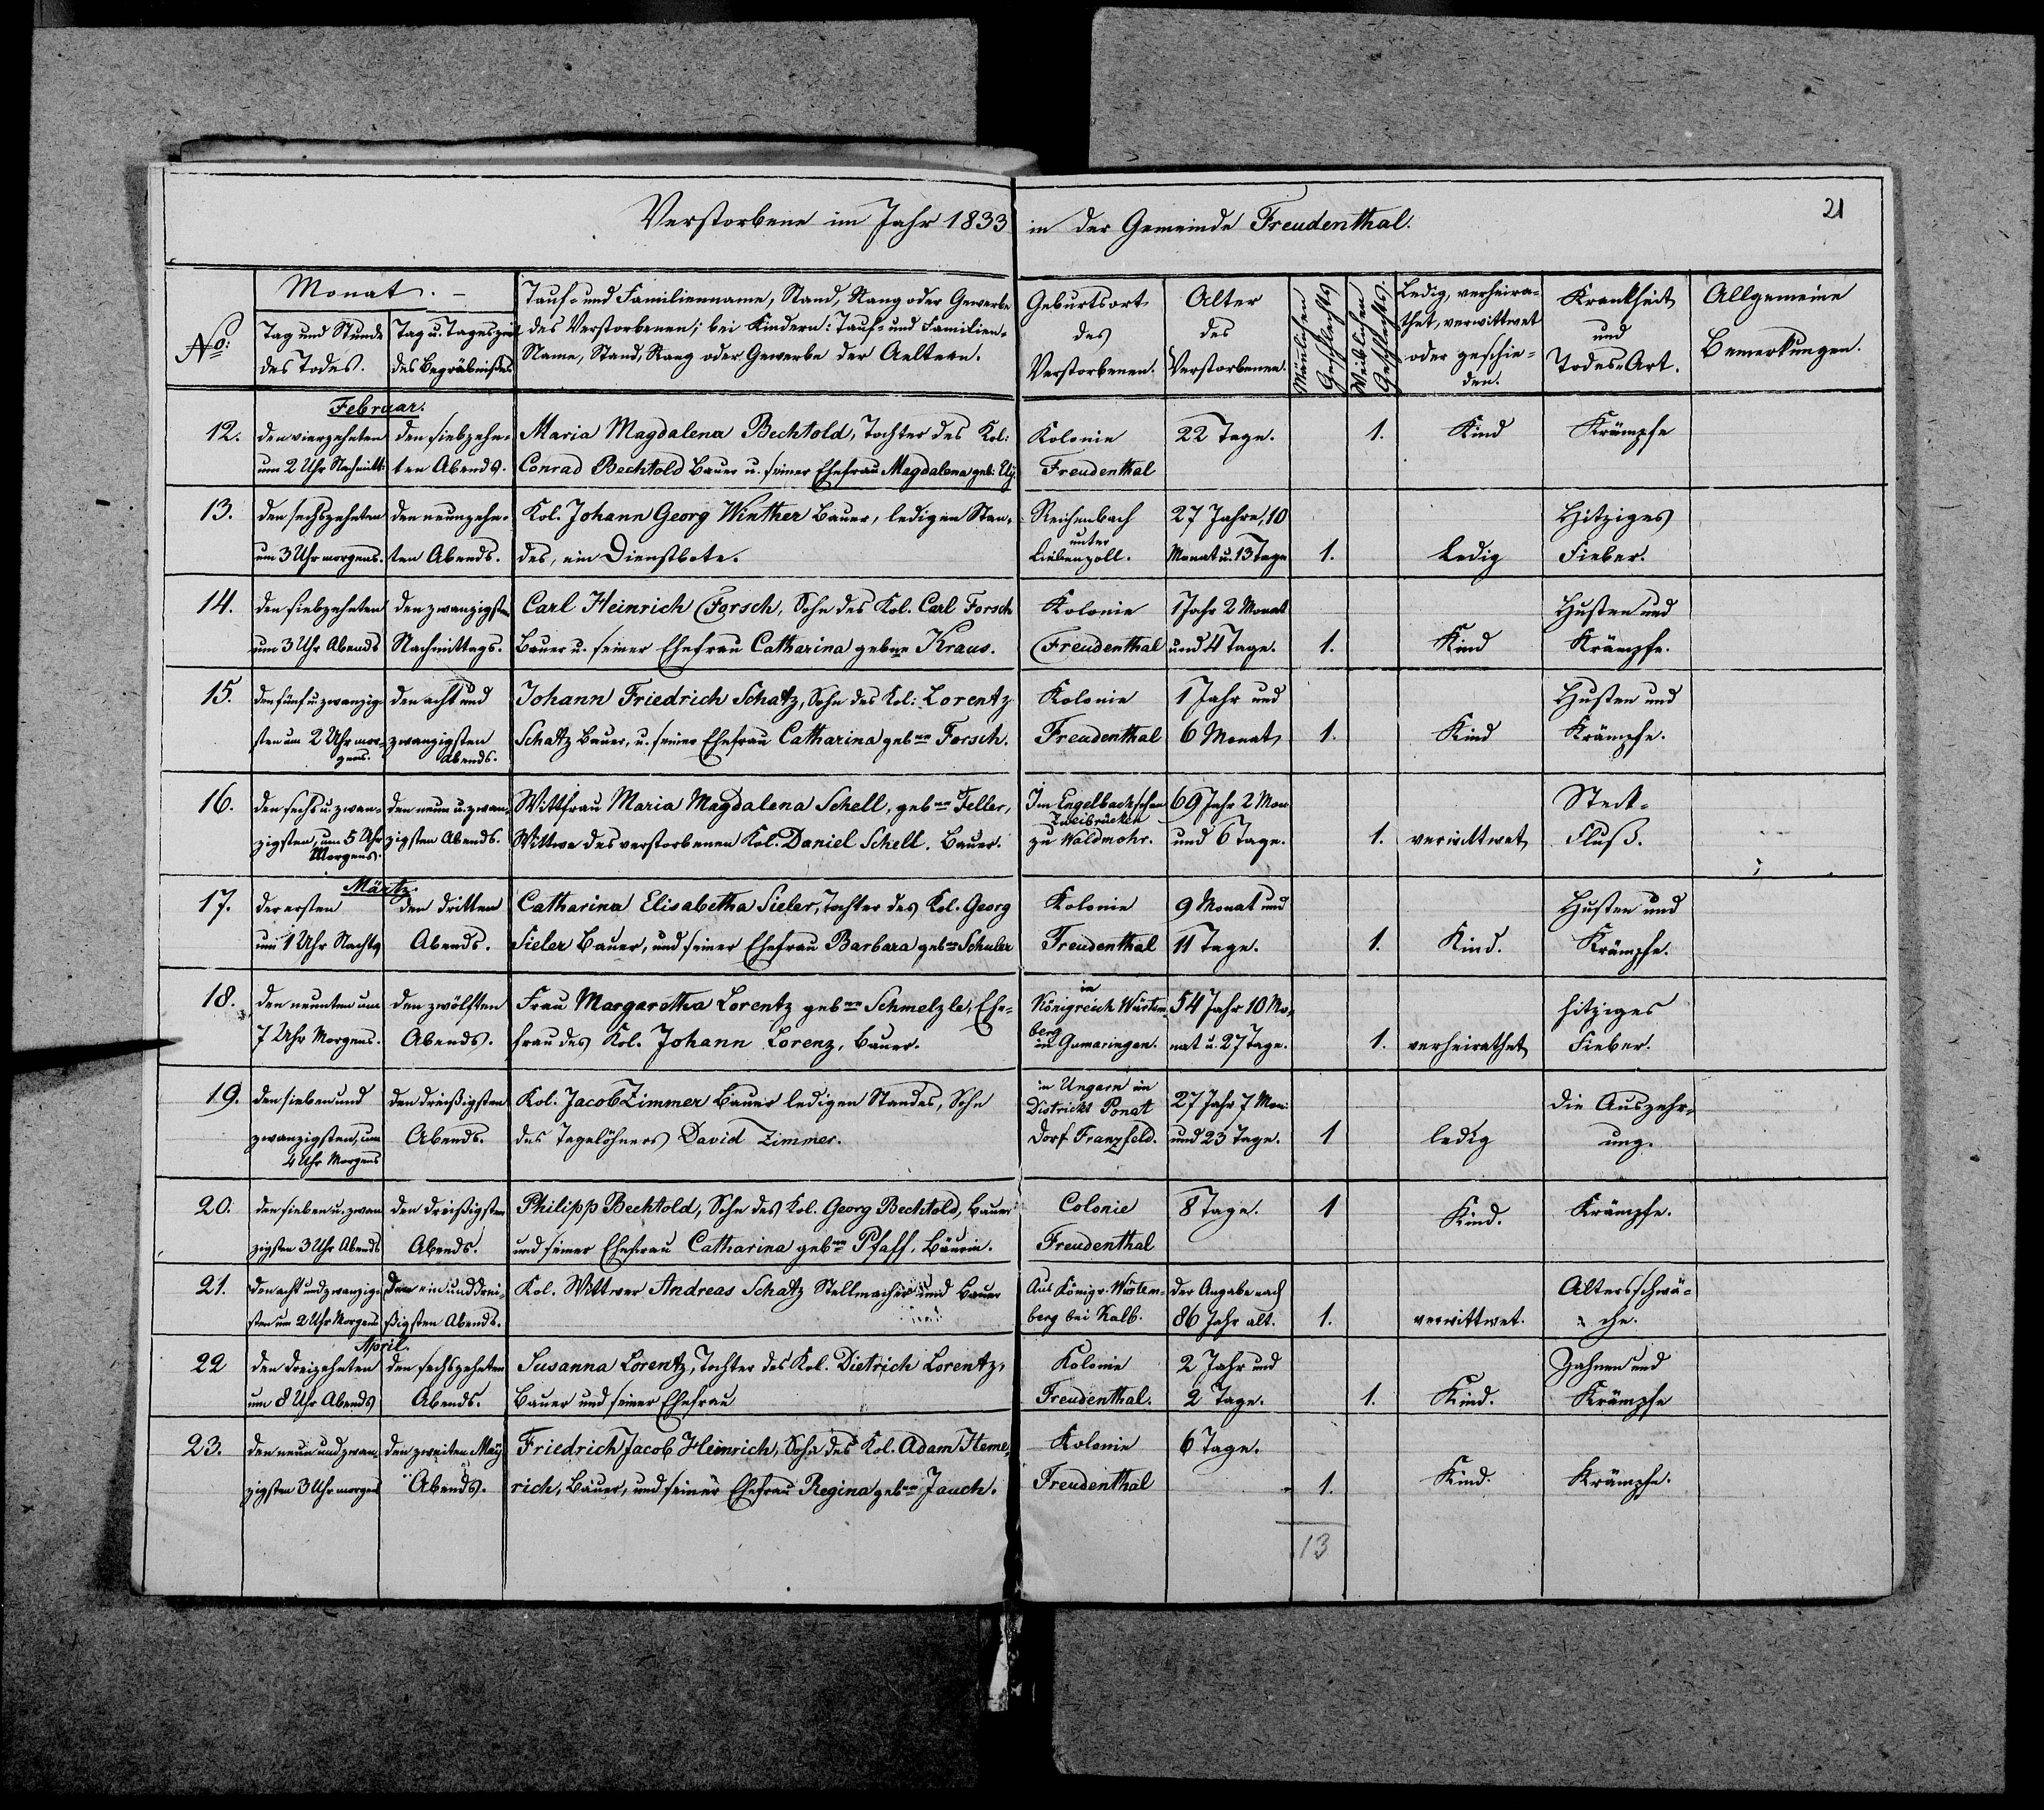 Verstorbene im Jahr 1833 in der Gemeinde Freudenthal.
21
No:
Monat. –
Tag und Stunde des Todes.
Tag u. Tageszeit des Begräbnißes
Tauf- und Familienname, Stand, Rang oder Gewerbe
des Verstorbenen; bei Kindern: Tauf- und Familien-
Name, Stand, Rang oder Gewerbe der Aeltern.
Geburtsort des Verstorbenen.
Alter des Verstorbenen.
Mänlichen Geschlechts
Weiblichen Geschlechts.
Ledig, verheira-
thet, verwittwet
oder geschie-
den.
Krankheit und Todes-Art.
Allgemeine Bemerkungen.
Februar.
12. den vierzehnten den siebzehn- Maria Magdalena Bechtold, Tochter des Kol: Kolonie 22 Tage. 1. Kind Krämpfe
um 2 Uhr Nachmitt: ten Abends. Conrad Bechtold Bauer u. seiner Ehefrau Magdalena geb: Ely. Freudenthal
13. den sechszehnten den neunzehn- Kol. Johann Georg Winther Bauer, ledigen Stan- Reichenbach 27 Jahre, 10 Hitziges
unter
um 3 Uhr morgens. ten Abends. des, ein Dienstbote. Liebenzoll. Monat u. 13 Tage 1. Ledig Fieber.
14. den siebzehnten den zwanzigsten Carl Heinrich Forsch, Sohn des Kol. Carl Forsch Kolonie 1 Jahr 2 Monat Husten und
um 3 Uhr Abends Nachmittags. Bauer u. seiner Ehefrau Catharina gebne Kraus. Freudenthal und 4 Tage. 1. Kind Krämpfe.
15. den fünf u. zwanzig- den acht und Johann Friedrich Schatz, Sohn des Kol: Lorentz Kolonie 1 Jahr und Husten und
sten um 2 Uhr mor- zwanzigsten Schatz Bauer, u. seiner Ehefrau Catharina gebne Forsch. Freudenthal 6 Monat 1. Kind Krämpfe.
gens. Abends.
16. den sechs u. zwan- den neun u. zwan- Wittfrau Maria Magdalena Schell, gebne Feller, Im Engelbachschen 69 Jahr 2 Mon Steck-
Zweibrücken
zigsten, um 5 Uhr zigsten Abends. Wittwe des verstorbenen Kol. Daniel Schell. Bauer. zu Waldmohr. und 6 Tage. 1. verwittwet Fluß.
Morgens.
Märtz.
17. den ersten den dritten Catharina Elisabetha Sieler, Tochter des Kol. Georg Kolonie 9 Monat und Husten und
um 1 Uhr Nachts Abends. Sieler Bauer, und seiner Ehefrau Barbara gebne Schuler Freudenthal 11 Tage. 1. Kind. Krämpfe.
in
18. den neunten um den zwölften Frau Margaretha Lorentz gebne Schmelzle, Ehe- Königreich Würtem- 54 Jahr 10 Mo- hitziges
berg
7 Uhr Morgens. Abends. frau des Kol. Johann Lorenz, Bauer. in Gumaringen. nat u. 27 Tage. 1. verheirathet Fieber.
in Ungarn im
19. den sieben und den dreißigsten Kol. Jacob Zimmer Bauer ledigen Standes, Sohn Districkt Ponat 27 Jahr 7 Mon: die Auszehr-
zwanzigsten, um Abends. des Tagelöhners David Zimmer. Dorf Franzfeld. und 23 Tage. 1 ledig ung.
4 Uhr Morgens
20. den sieben u. zwan den dreißigsten Philipp Bechtold, Sohn des Kol. Georg Bechtold, Bauer Colonie 8 Tage. 1 Kind. Krämpfe.
zigsten 3 Uhr Abends Abends. und seiner Ehefrau Catharina gebne Pfaff. Bäurin. Freudenthal
21. den acht und zwanzig- den ein und drei- Kol. Wittwer Andreas Schatz Stellmacher und Bauer Aus Königr. Würtem- der Angabe nach Altersschwä-
sten um 2 Uhr Morgens ßigsten Abends. berg bei Kalb. 86 Jahr alt. 1. verwittwet. che.
April.
22 den dreizehnten den sechszehnten Susanna Lorentz, Tochter des Kol. Dietrich Lorentz, Kolonie 2 Jahr und Zahnen und
um 8 Uhr Abends Abends. Bauer und seiner Ehefrau Freudenthal. 2 Tage. 1. Kind. Krämpfe
23. den neun und zwan- den zweiten May Friedrich Jacob Heinrich, Sohn des Kol. Adam Heme- Kolonie 6 Tage.
zigsten 3 Uhr morgens Abends. rich, Bauer, und seiner Ehefrau Regina gebne Jauch. Freudenthal 1. Kind. Krämpfe.
13